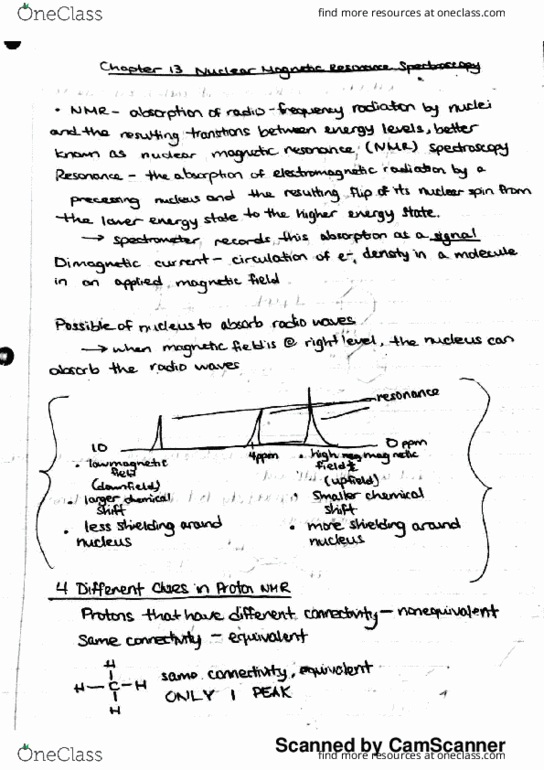 OneClass
find more resources at oneclass.com
Chapter 13 Nuclear Magnetic Resonance Spectroscopy
• NMR - absorption of radio-frequency radiation by nuclei
and the resulting transtions between energy levels, better
known as nuclear magnetic resonance, (NMR) spectroscopy
Resonance - the absorption of electromagnetic radiation by a
precessing nucleus and the resulting flip of its nuclear spin from
the lower energy state to the higher energy state.
→ spectrometer records this absorption as a signal
Dimagnetic current - circulation of e-, density in a molecule
in an applied magnetic field
Possible of nucleus to absorb radio waves
→ when magnetic field is @ right level, the nucleus can
absorb the radio waves
resonance
10 4ppm 0 ppm
• low magnetic field (downfield)
• high magnetic field (upfield)
• larger chemical shift
• smaller chemical shift
• less shielding around nucleus
• more shielding around nucleus
4 Different Clues in Proton NMR
Protons that have different connectivity - nonequivalent
same connectivity - equivalent
H
H-C-H same connectivity, equivalent
H ONLY 1 PEAK
Scanned by CamScanner
OneClass
find more resources at oneclass.com